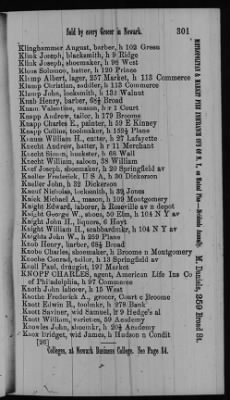 Sold by every Grocer in Newark. 301
Klinghammer August, barber, h 102 Green
Klink Joseph, blacksmith, h 9 Ridge
Klink Joseph, shoemaker, h 98 West
Kloss Solomon, hatter, h 120 Prince
Klump Albert, lager, 257 Market, h 113 Commerce
Klump Christian, saddler, h 113 Commerce
Klump John, locksmith, h 131 Walnut
Knab Henry, barber, 68½ Broad
Knan Valentine, mason, h r 1 Court
Knapp Andrew, tailor, h 179 Broome
Knapp Charles E., painter, h 59 E Kinney
Knapp Collins, toolmaker, h 158½ Plane
Knauss William H., cutter, h 27 Lafayette
Knecht Andrew, hatter, h r 11 Merchant
Knecht Simon, huckster, h 68 Wall
Knecht William, saloon, 38 William
Knef Joseph, shoemaker, h 20 Springfield av
Kneller Frederick, U S A, h 30 Dickerson
Kneller John, h 32 Dickerson
Kneuf Nicholas, locksmith, h 39 Jones
Knick Michael A., mason, h 109 Montgomery
Knight Edward, laborer, h Roseville av n depot
Knight George W., shoes, 50 Elm, h 104 N Y av
Knight John H., liquors, 6 Hoyt
Knight William H., scabbardmkr, h 104 N Y av
Knights John W., h 259 Plane
Knob Henry, barber, 68½ Broad
Knobs Charles, shoemaker, h Broome n Montgomery
Knoche Conrad, tailor, h 13 Springfield av
Knoll Paul, draugist, 197 Market
KNOPF CHARLES, agent, American Life Ins Co
of Philadelphia, h 97 Commerce
Knoth John laborer, h 15 West
Knothe Frederick A., grocer, Court c Broome
Knott Edwin R., toolmkr, h 278 Bank
Knott Saviner, wid Samuel, h 9 Hedge's al
Knott William, varieties, 59 Academy
Knowles John, shoemkr, h 20½ Academy
Knox Bridget, wid James, h Hudson n Condit
[26]
College, at Newark Business College. See Page 54.
M. Daniels, 259 Broad St.